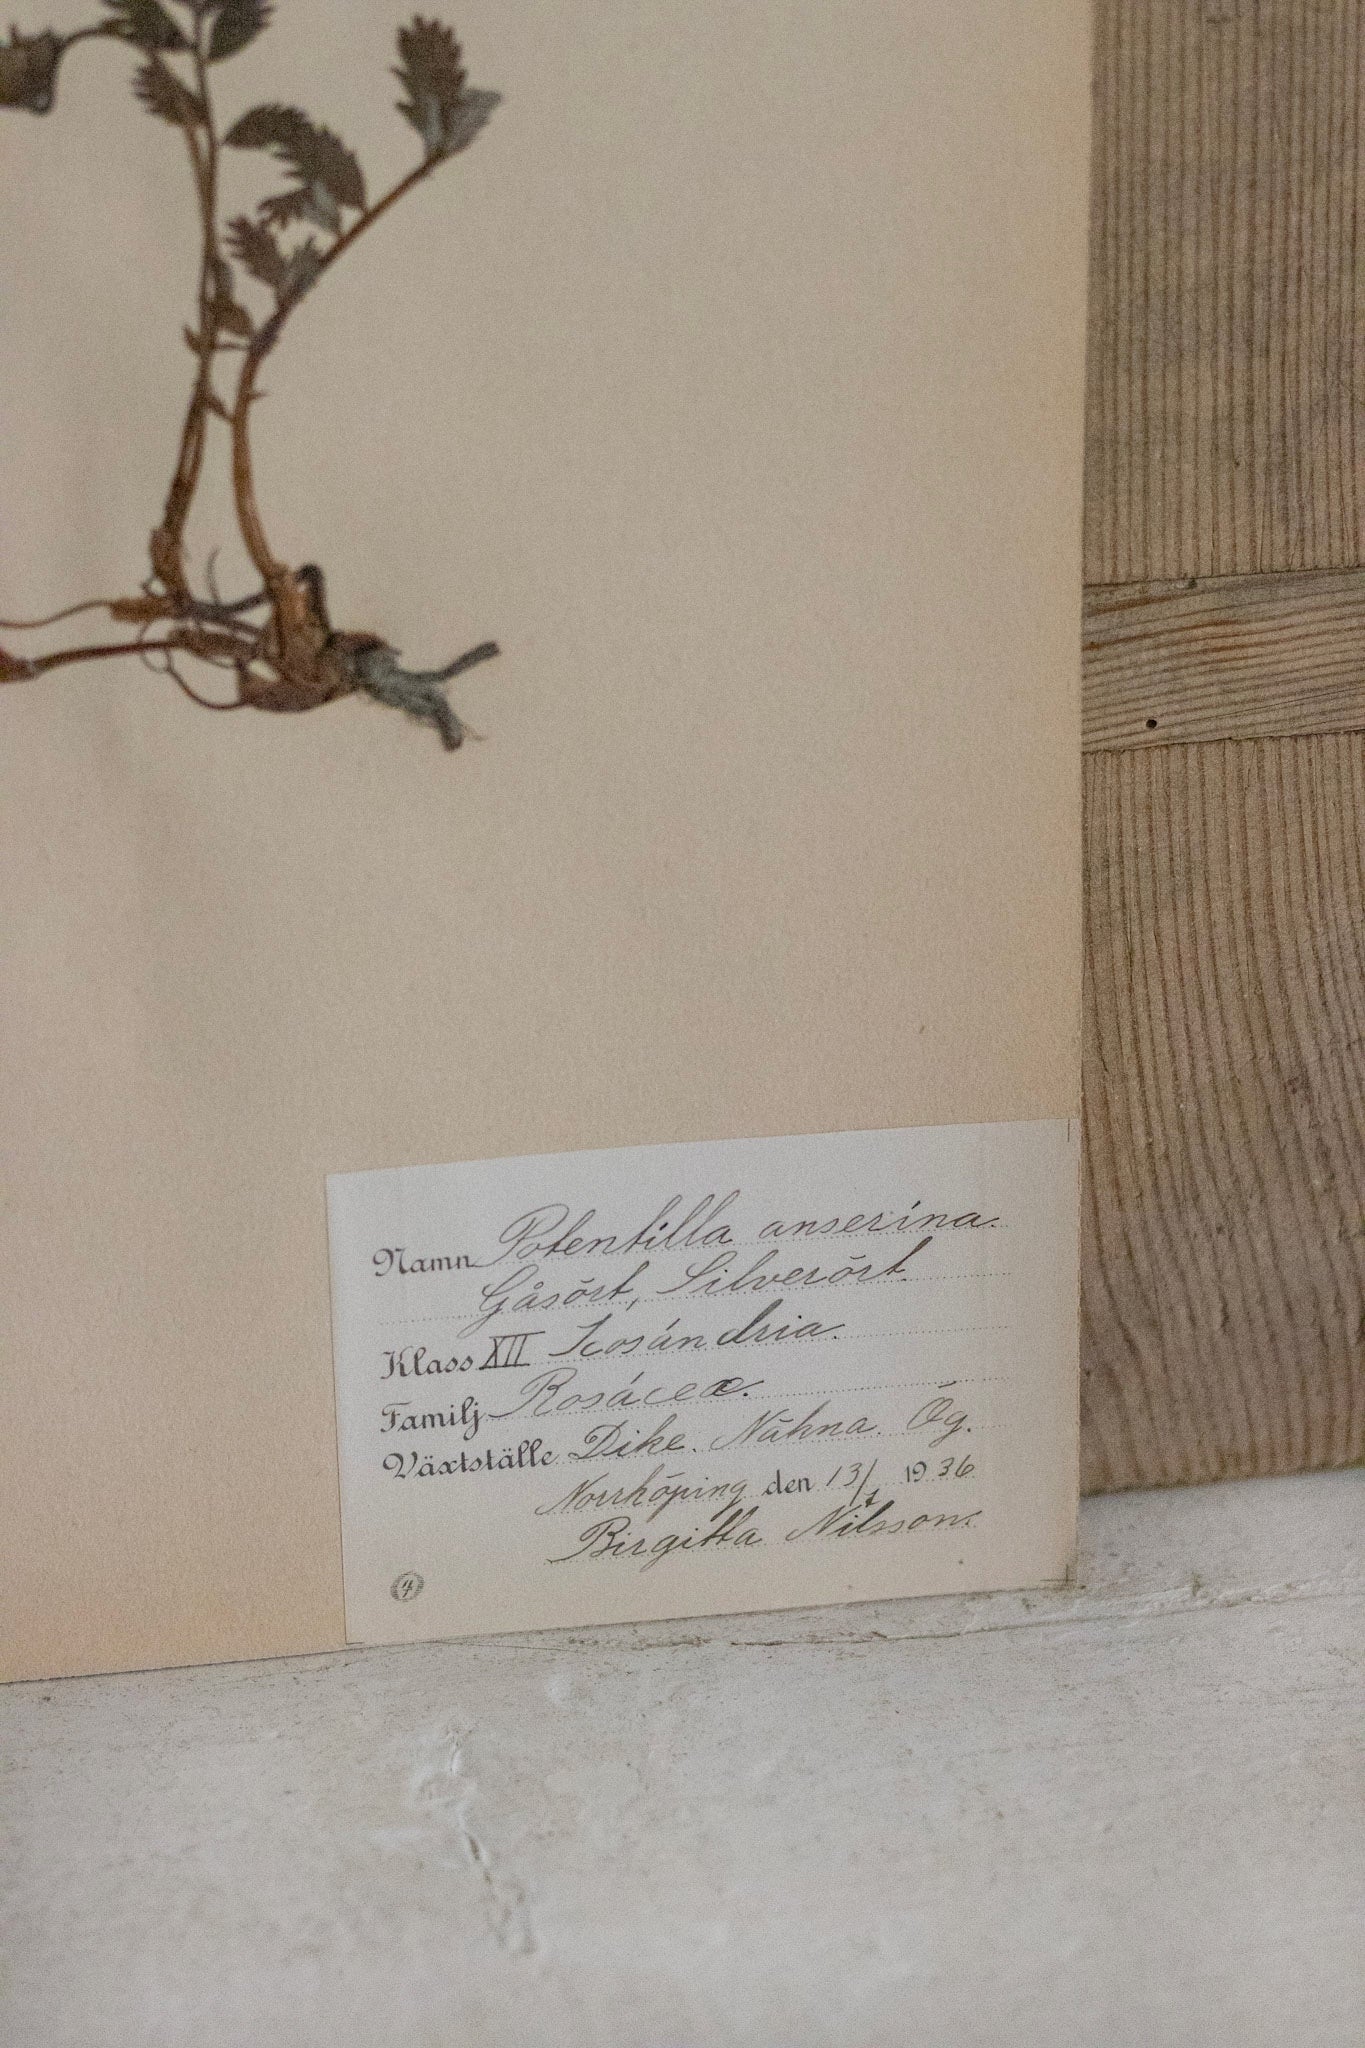 Namn Potentilla anserína.
Gåsört, Silverört.
Klass XII Icosándria.
Familj Rosáceæ.
Växtställe Dike. Nähna. Ög.
Norrköping den 13/7 1936
Birgitta Nilsson.
4